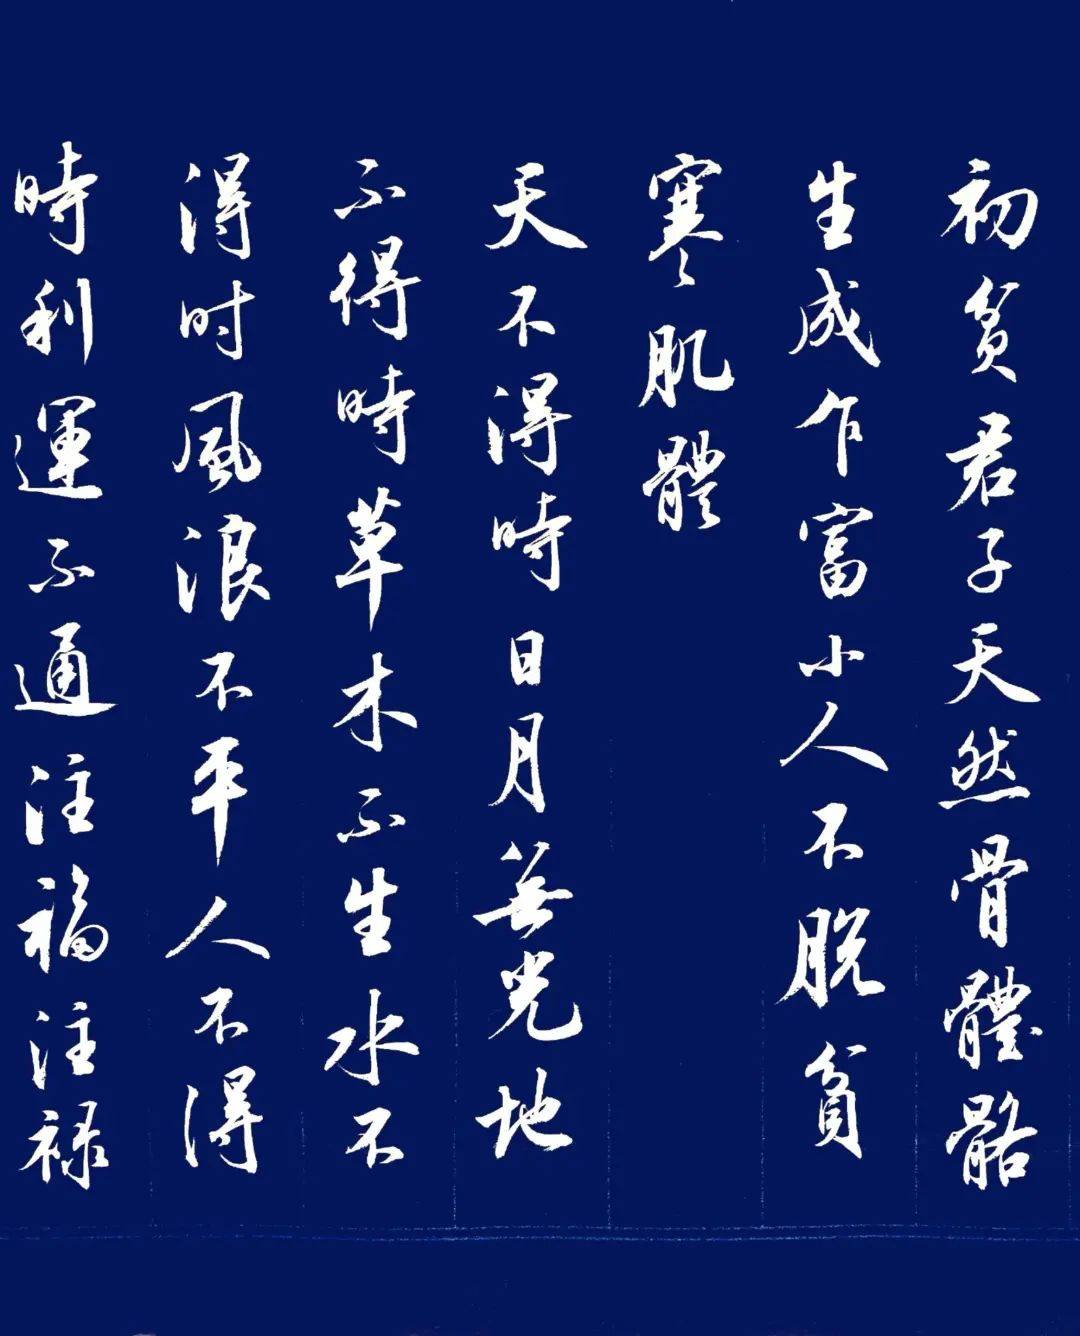 初貧君子天然骨體骼
生成乍富小人不脱貧
寒肌體
天不得時日月無光地
不得時草木不生水不
得时風浪不平人不得
時利運不通注福注禄